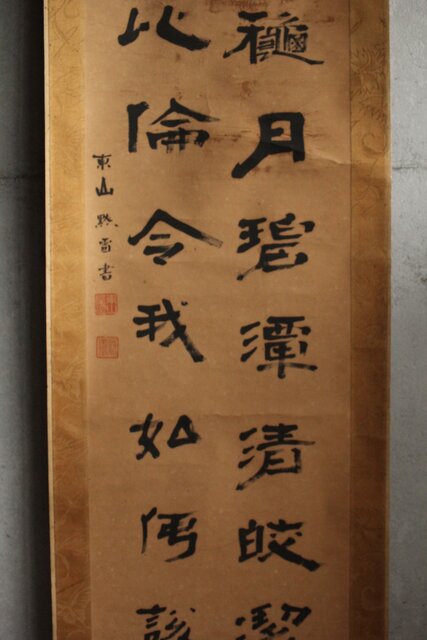 龝月碧潭清皎潔
比倫令我如何説
東山黙雷書